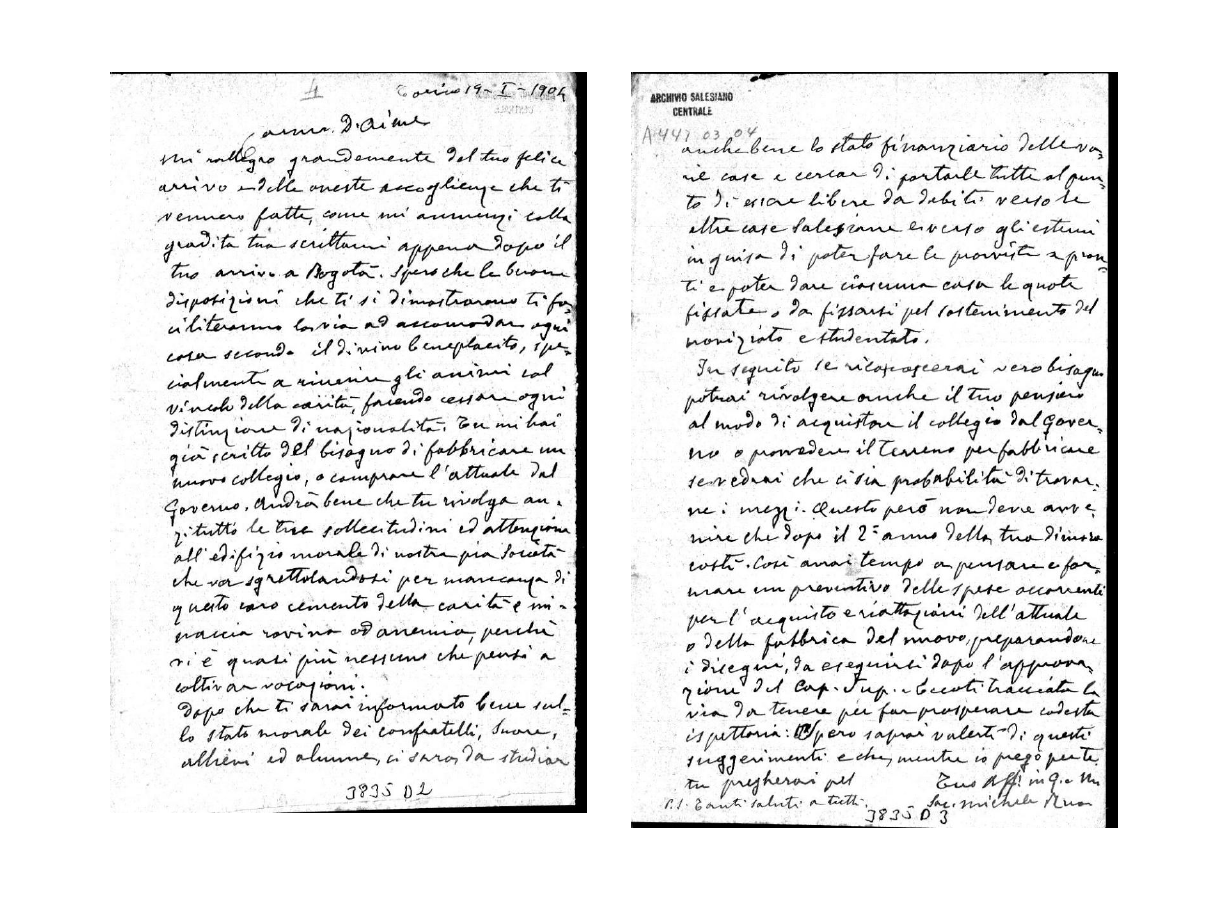 4
Torino 19-I-1904
Cariss. D. Aime
Mi rallegro grandemente del tuo felice
arrivo e delle oneste accoglienze che ti
vennero fatte, come mi annunzi colla
gradita tua scrittami appena dopo il
tuo arrivo a Bogotà. Spero che le buone
disposizioni che ti si dimostrarono ti fa-
ciliteranno la via ad accomodar ogni
cosa secondo il divino beneplacito, spe-
cialmente a riunire gli animi col
vincolo della carità, facendo cessare ogni
distinzione di nazionalità. Tu mi hai
già scritto del bisogno di fabbricare un
nuovo collegio, o comprare l'attuale dal
Governo. Andrà bene che tu rivolga an-
zitutto le tue sollecitudini ed attenzione
all'edifizio morale di nostra pia Società
che va sgrettolandosi per mancanza di
questo caro cemento della carità e mi-
naccia rovina od anemia, perchè
vi è quasi più nessuno che pensi a
coltivar vocazioni.
Dopo che ti sarai informato bene sul-
lo stato morale dei confratelli, Suore,
allievi ed alunne, ci sarà da studiar
3835 D2
ARCHIVIO SALESIANO
CENTRALE
A 447 03 04
anche bene lo stato finanziario delle va-
rie case e cercar di portarle tutte al pun-
to di essere libere da debiti verso le
altre case Salesiane e verso gli esterni
in guisa di poter fare le provviste a pron-
ti e poter dare ciascuna casa le quote
fissate o da fissarsi pel sostenimento del
noviziato e studentato.
In seguito se riconoscerai vero bisogno
potrai rivolgere anche il tuo pensiero
al modo di acquistare il collegio dal Gover-
no o provvedere il terreno per fabbricare
se vedrai che ci sia probabilità di trovar-
ne i mezzi. Questo però non deve avve-
nire che dopo il 2° anno della tua dimora
costì. Così avrai tempo a pensare e for-
mare un preventivo delle spese occorrenti
per l'acquisto e riattazioni dell'attuale
o della fabbrica del nuovo, preparandone
i disegni, da eseguirsi dopo l'approva-
zione del Cap. Sup. Eccoti tracciata la
via da tenere per far prosperare codesta
ispettoria: Spero saprai valerti di questi
suggerimenti e che, mentre io prego per te,
tu pregherai pel Tuo Aff. in G. e M.
P.S. Tanti saluti a tutti. Sac. Michele Rua
3835 D 3